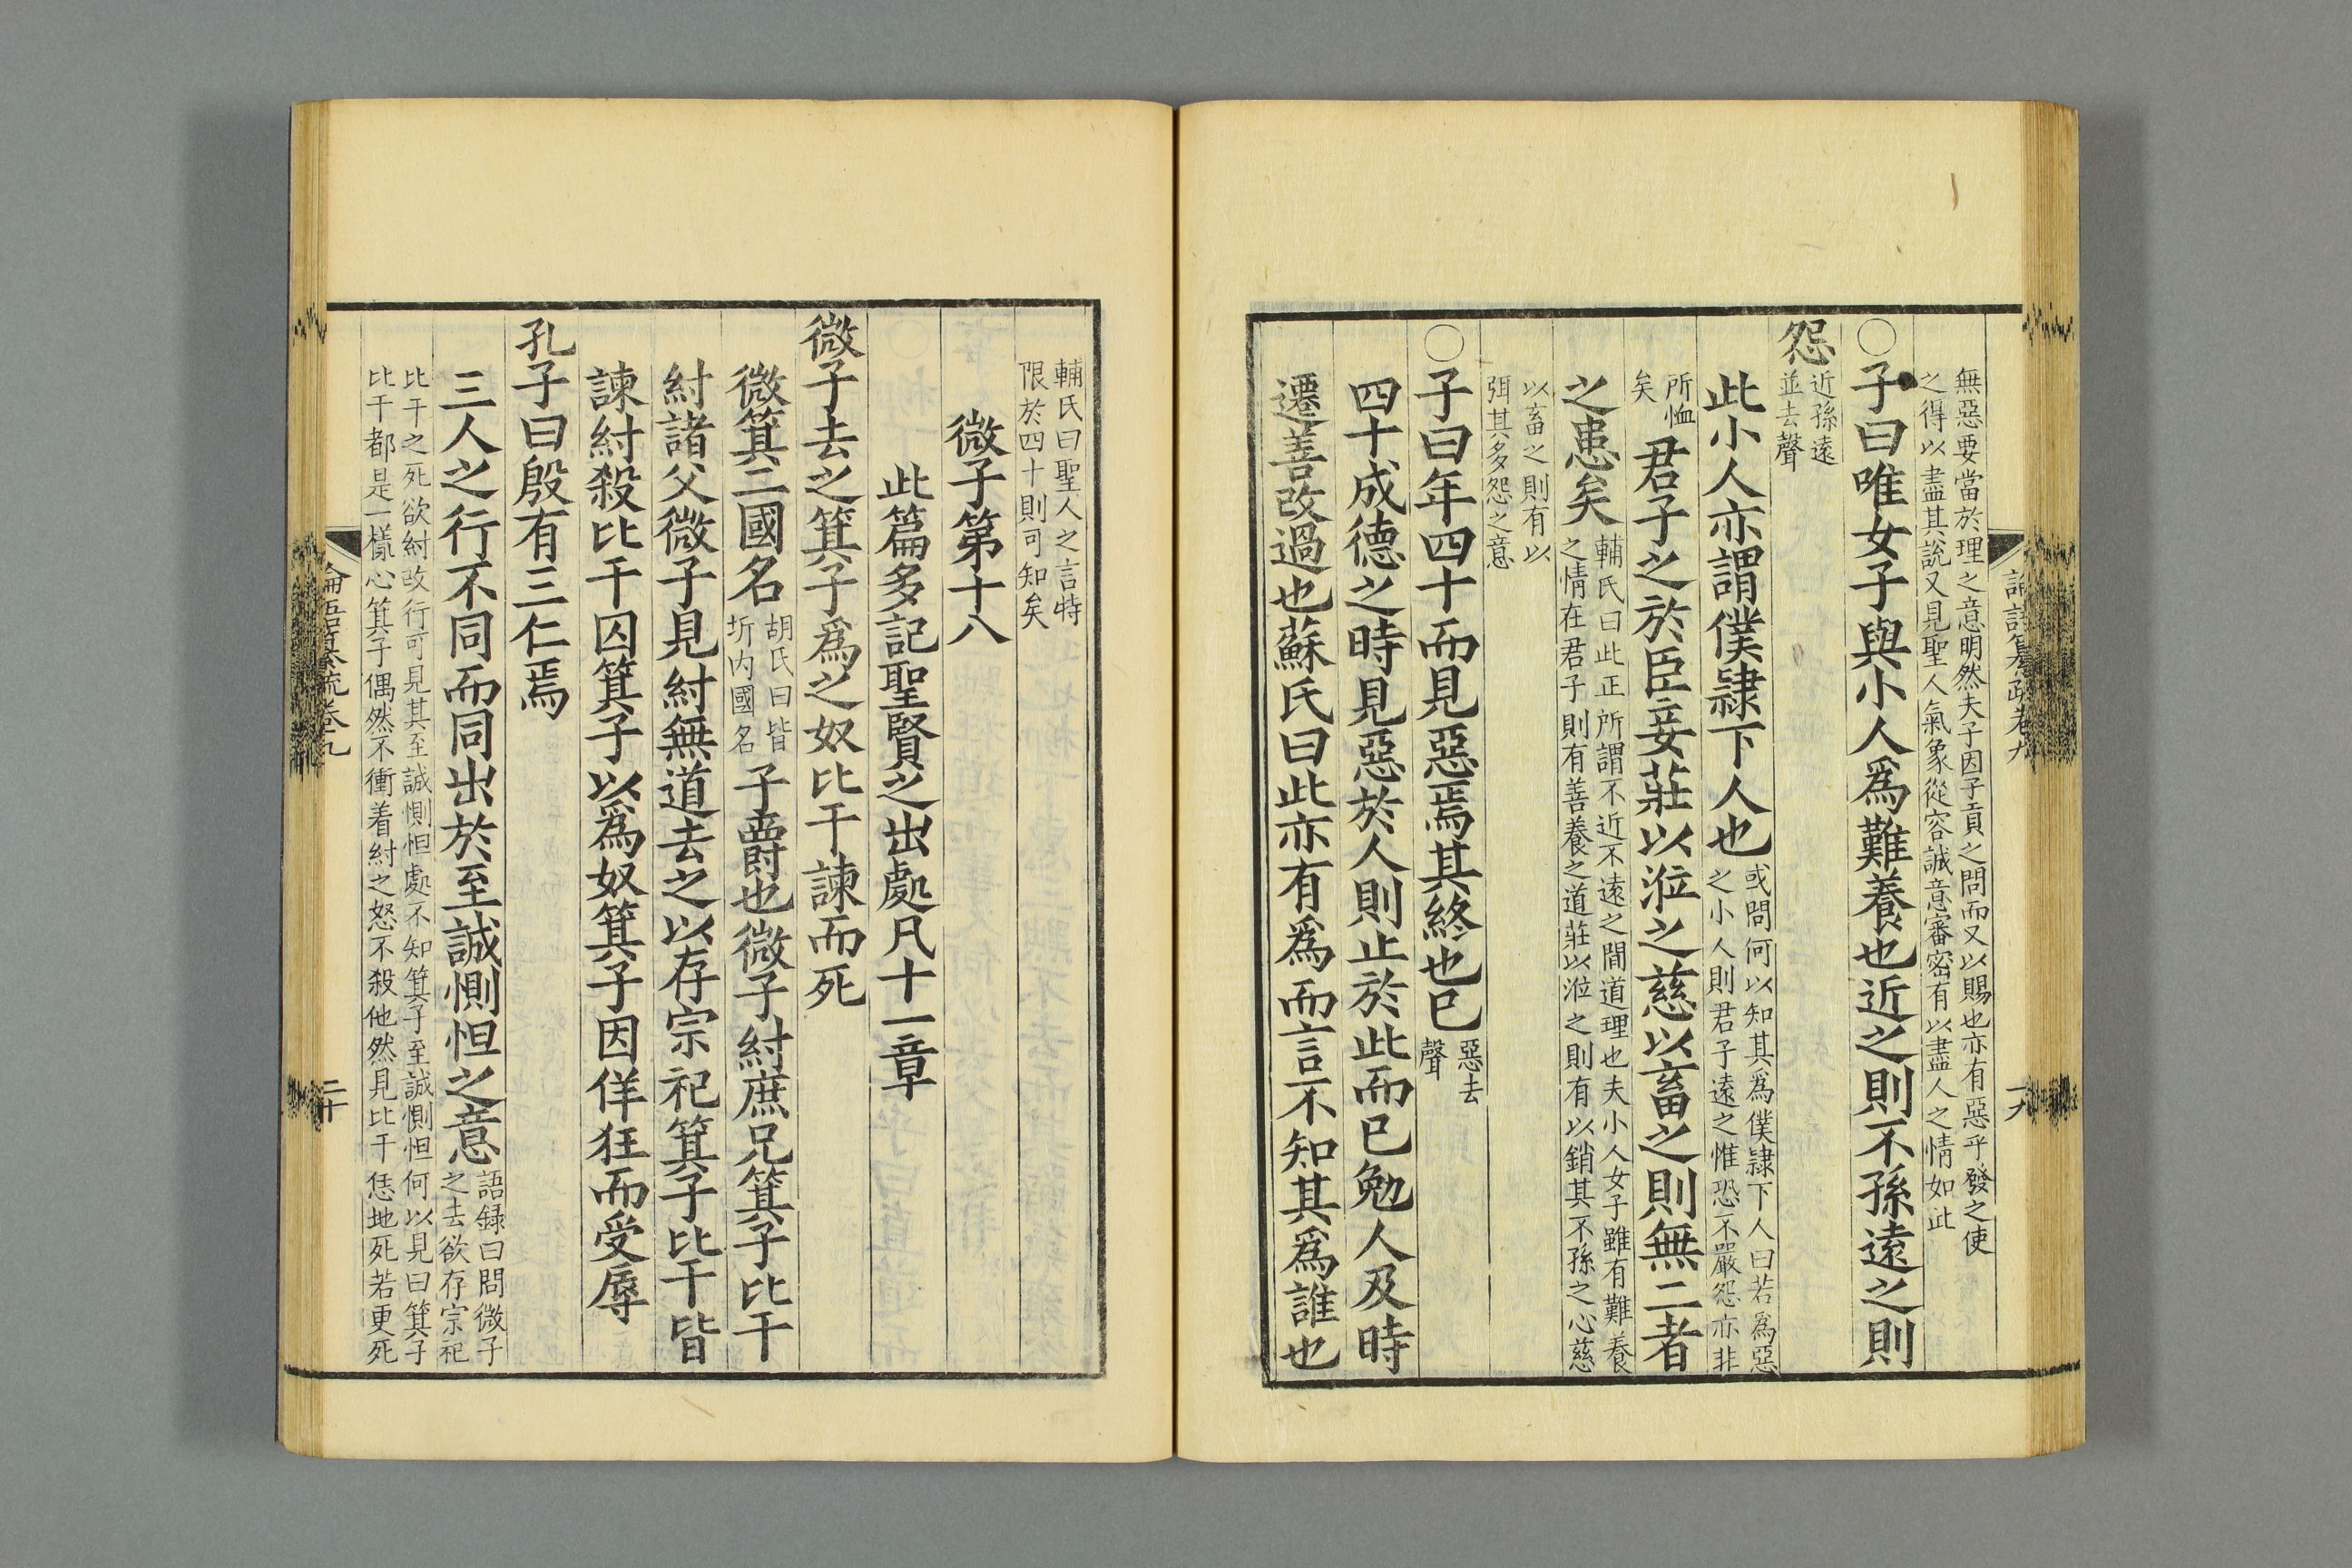 論語纂疏卷九
十九
無惡要當於理之意明然夫子因子貢之問而又以賜也亦有惡乎發之使
之得以盡其說又見聖人氣象從容誠意審密有以盡人之情如此
○子曰唯女子與小人爲難養也近之則不孫遠之則
怨
近孫遠
並去聲
此小人亦謂僕隷下人也
或問何以知其爲僕隷下人曰若爲惡
之小人則君子遠之惟恐不嚴怨亦非
所恤
矣
君子之於臣妾莊以涖之慈以畜之則無二者
之患矣
輔氏曰此正所謂不近不遠之間道理也夫小人女子雖有難養
之情在君子則有善養之道莊以涖之則有以銷其不孫之心慈
以畜之則有以
弭其多怨之意
○子曰年四十而見惡焉其終也已
惡去
聲
四十成德之時見惡於人則止於此而已勉人及時
遷善改過也蘇氏曰此亦有爲而言不知其爲誰也
輔氏曰聖人之言特
限於四十則可知矣
微子第十八
此篇多記聖賢之出處凡十一章
微子去之箕子爲之奴比干諫而死
微箕二國名
胡氏曰皆
圻内國名
子爵也微子紂庶兄箕子比干
紂諸父微子見紂無道去之以存宗祀箕子比干皆
諫紂殺比干囚箕子以爲奴箕子因佯狂而受辱
孔子曰殷有三仁焉
三人之行不同而同出於至誠惻怛之意
語録曰問微子
之去欲存宗祀
比干之死欲紂改行可見其至誠惻怛處不知箕子至誠惻怛何以見曰箕子
比干都是一樣心箕子偶然不衝着紂之怒不殺他然見比干恁地死若更死
論語纂疏卷九
二十